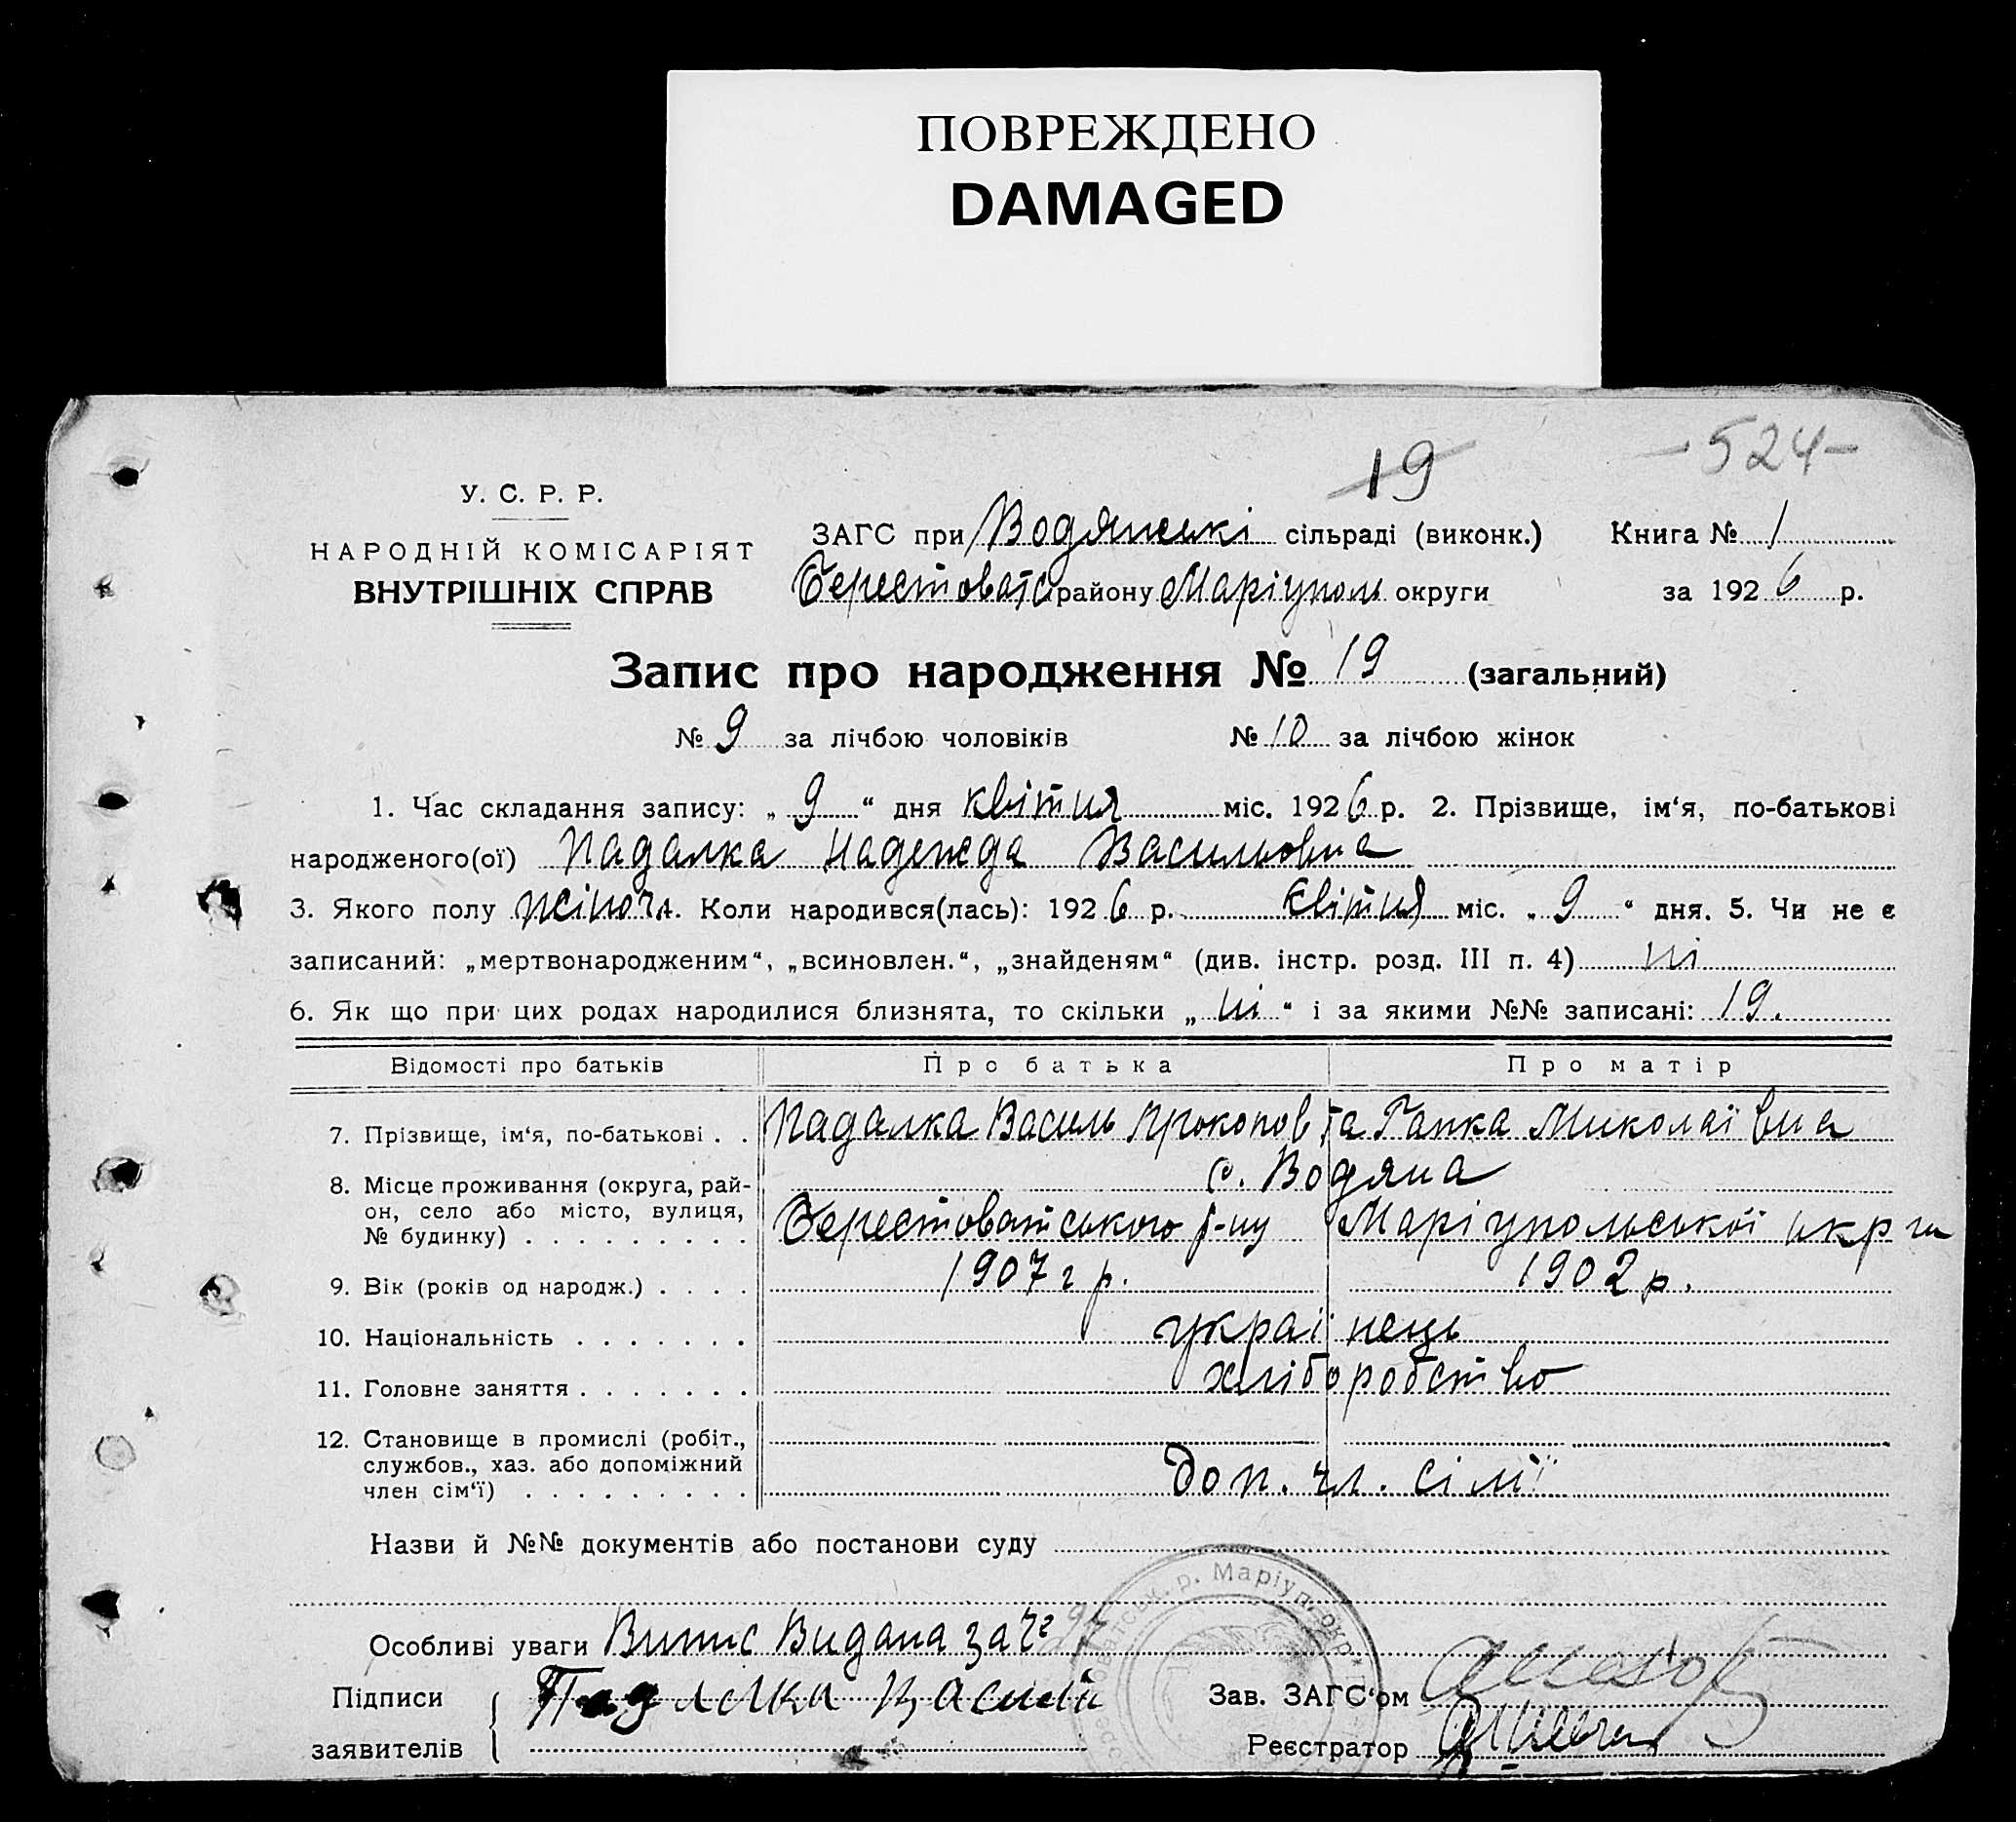 ПОВРЕЖДЕНО
DAMAGED
19
-524-
У. С. Р. Р.
НАРОДНІЙ КОМІСАРІЯТ
ВНУТРІШНІХ СПРАВ
ЗАГС при Водянські сільраді (виконк.) Книга № 1
Берестоватс району Маріуполь округи за 1926 р.
Запис про народження № 19 (загальний)
№ 9 за лічбою чоловіків № 10 за лічбою жінок
1. Час складання запису: „9“ дня квітня міс. 1926 р. 2. Прізвище, ім‘я, по-батькові
народженого(ої) Падалка Надежда Васильовна
3. Якого полу жіноч. Коли народився(лась): 1926 р. квітня міс. „9“ дня. 5. Чи не є
записаний: „мертвонародженим“, „всиновлен.“, „знайденям“ (див. інстр. розд. III п. 4) ні
6. Як що при цих родах народилися близнята, то скільки „ні“ і за якими №№ записані: 19.
Відомості про батьків Про батька Про матір
7. Прізвище, ім‘я, по-батькові . . Падалка Василь Прокопов та Гапка Миколаївна
8. Місце проживання (округа, рай- с. Водяна
он, село або місто, вулиця,
№ будинку) . . . . . . . . . Берестоватського р-ну Маріупольської окрги
9. Вік (років од народж.) . . . . 1907 г р. 1902 р.
10. Національність . . . . . . . українець
11. Головне заняття . . . . . . . хліборобство
12. Становище в промислі (робіт.,
службов., хаз. або допоміжний
член сім‘ї) . . . . . . . . . доп. чл. сімї
Назви й №№ документів або постанови суду
Особливі уваги Випис Видана за
Підписи Падалка Василь Зав. ЗАГС‘ом
заявителів Реєстратор
р. Маріуп. окр.